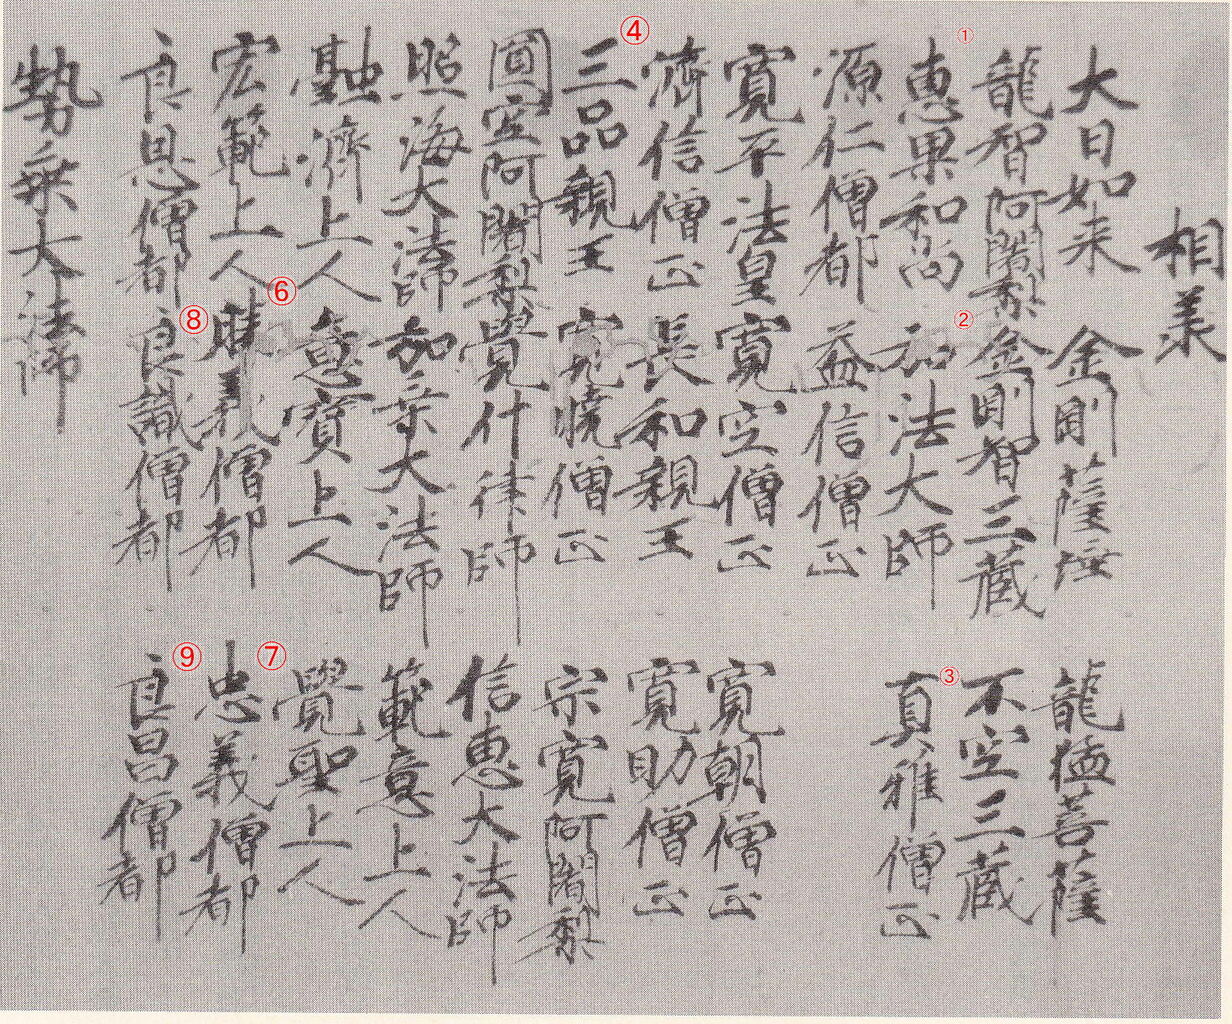 相承
大日如来 金剛薩埵 龍猛菩薩
龍智阿闍梨 金剛智三蔵 不空三蔵
① 恵果和尚 ② 弘法大師 ③ 真雅僧正
源仁僧都 益信僧正
寛平法皇 寛空僧正 寛朝僧正
濟信僧正 長和親王 寛助僧正
④ 三品親王 寛曉僧正 宗寛阿闍梨
圓空阿闍梨 覺什律師 信恵大法師
照海大法師 加葉大法師 範意上人
融濟上人 意寶上人 覺聖上人
宏範上人 ⑥ 義僧都 ⑦ 忠義僧都
良恩僧都 ⑧ 良識僧都 ⑨ 良昌僧都
勢乗大法師